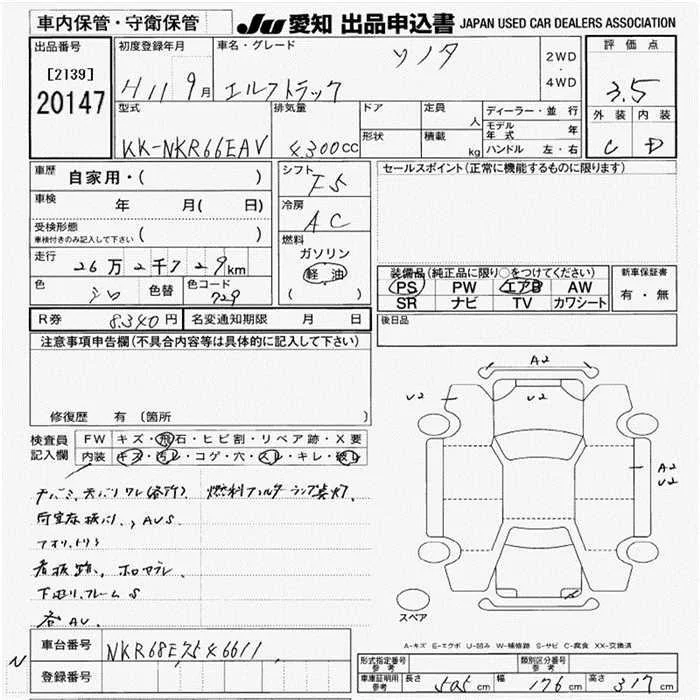 車内保管・守衛保管
JU 愛知 出品申込書 JAPAN USED CAR DEALERS ASSOCIATION
出品番号 初度登録年月 車名・グレード ソノタ 2WD・4WD 評価点
[2139]
20147
H11 9月 エルフトラック 3.5
型式 排気量 ドア 定員 人 ディーラー・並行 外装 内装
モデル年式 年
KK-NKR66EAV 4.300cc 形状 積載 kg ハンドル 左・右 C D
車歴 自家用・( ) シフト F5 セールスポイント(正常に機能するものに限ります)
車検 年 月( 日) 冷房 AC
受検形態
車検付きのみ記入して下さい ( )
燃料
走行 26万2千729km ガソリン 装備品(純正品に限り○をつけてください) 新車保証書
軽油 PS PW エアB AW 有・無
色 シロ 色替 色コード 729 ( ) SR ナビ TV カワシート
R券 8.340円 名変通知期限 月 日 後日品
注意事項申告欄(不具合内容等は具体的に記入して下さい)
A2
U2 U2
修復歴 有 〔箇所 〕
検査員 FW キズ・飛石・ヒビ割・リペア跡・X要
記入欄 内装 キズ・汚レ・コゲ・穴・スレ・キレ・破レ
A2
U2
燃料フィルターランプ点灯
荷室床板
AUS
看板跡
下廻り、フレームS
各AU
スペア
A-キズ E-エクボ U-凹み W-補修跡 S-サビ C-腐食 XX-交換済
車台番号 NKR68E7546611
N
登録番号
形式指定番号 参考 類別区分番号 参考
車庫証明用 参考 長さ 505cm 幅 176cm 高さ 317cm